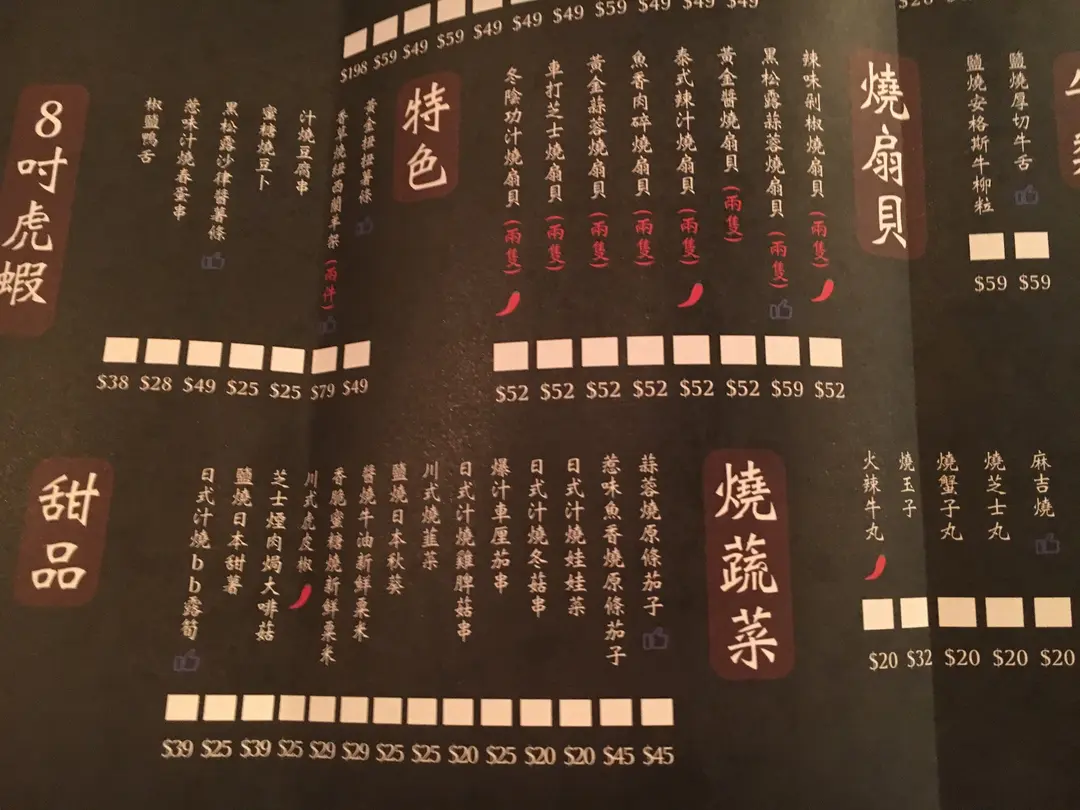 $198 $59 $49 $59 $49 $49 $49 $59 $49 $49 $49
鹽燒厚切牛舌
鹽燒安格斯牛柳粒
$59 $59
燒扇貝
辣味剁椒燒扇貝(兩隻)
黑松露蒜蓉燒扇貝(兩隻)
黃金醬燒扇貝(兩隻)
泰式辣汁燒扇貝(兩隻)
魚香肉碎燒扇貝(兩隻)
黃金蒜蓉燒扇貝(兩隻)
車打芝士燒扇貝(兩隻)
冬陰功汁燒扇貝(兩隻)
$52 $52 $52 $52 $52 $52 $59 $52
特色
香草燒紐西蘭羊架(兩件)
汁燒豆腐串
蜜糖燒豆卜
黑松露沙律醬薯條
惹味汁燒春蛋串
椒鹽鴨舌
$38 $28 $49 $25 $25 $79 $49
8吋虎蝦
麻吉燒
燒芝士丸
燒蟹子丸
燒玉子
火辣牛丸
$20 $32 $20 $20 $20
燒蔬菜
蒜蓉燒原條茄子
惹味魚香燒原條茄子
日式汁燒娃娃菜
日式汁燒冬菇串
爆汁車厘茄串
日式汁燒雞脾菇串
川式燒韮菜
鹽燒日本秋葵
醬燒牛油新鮮粟米
香脆蜜糖燒新鮮粟米
川式虎皮椒
芝士煙肉焗大啡菇
鹽燒日本甜薯
日式汁燒bb露荀
$39 $25 $39 $25 $29 $29 $25 $25 $20 $25 $20 $20 $45 $45
甜品